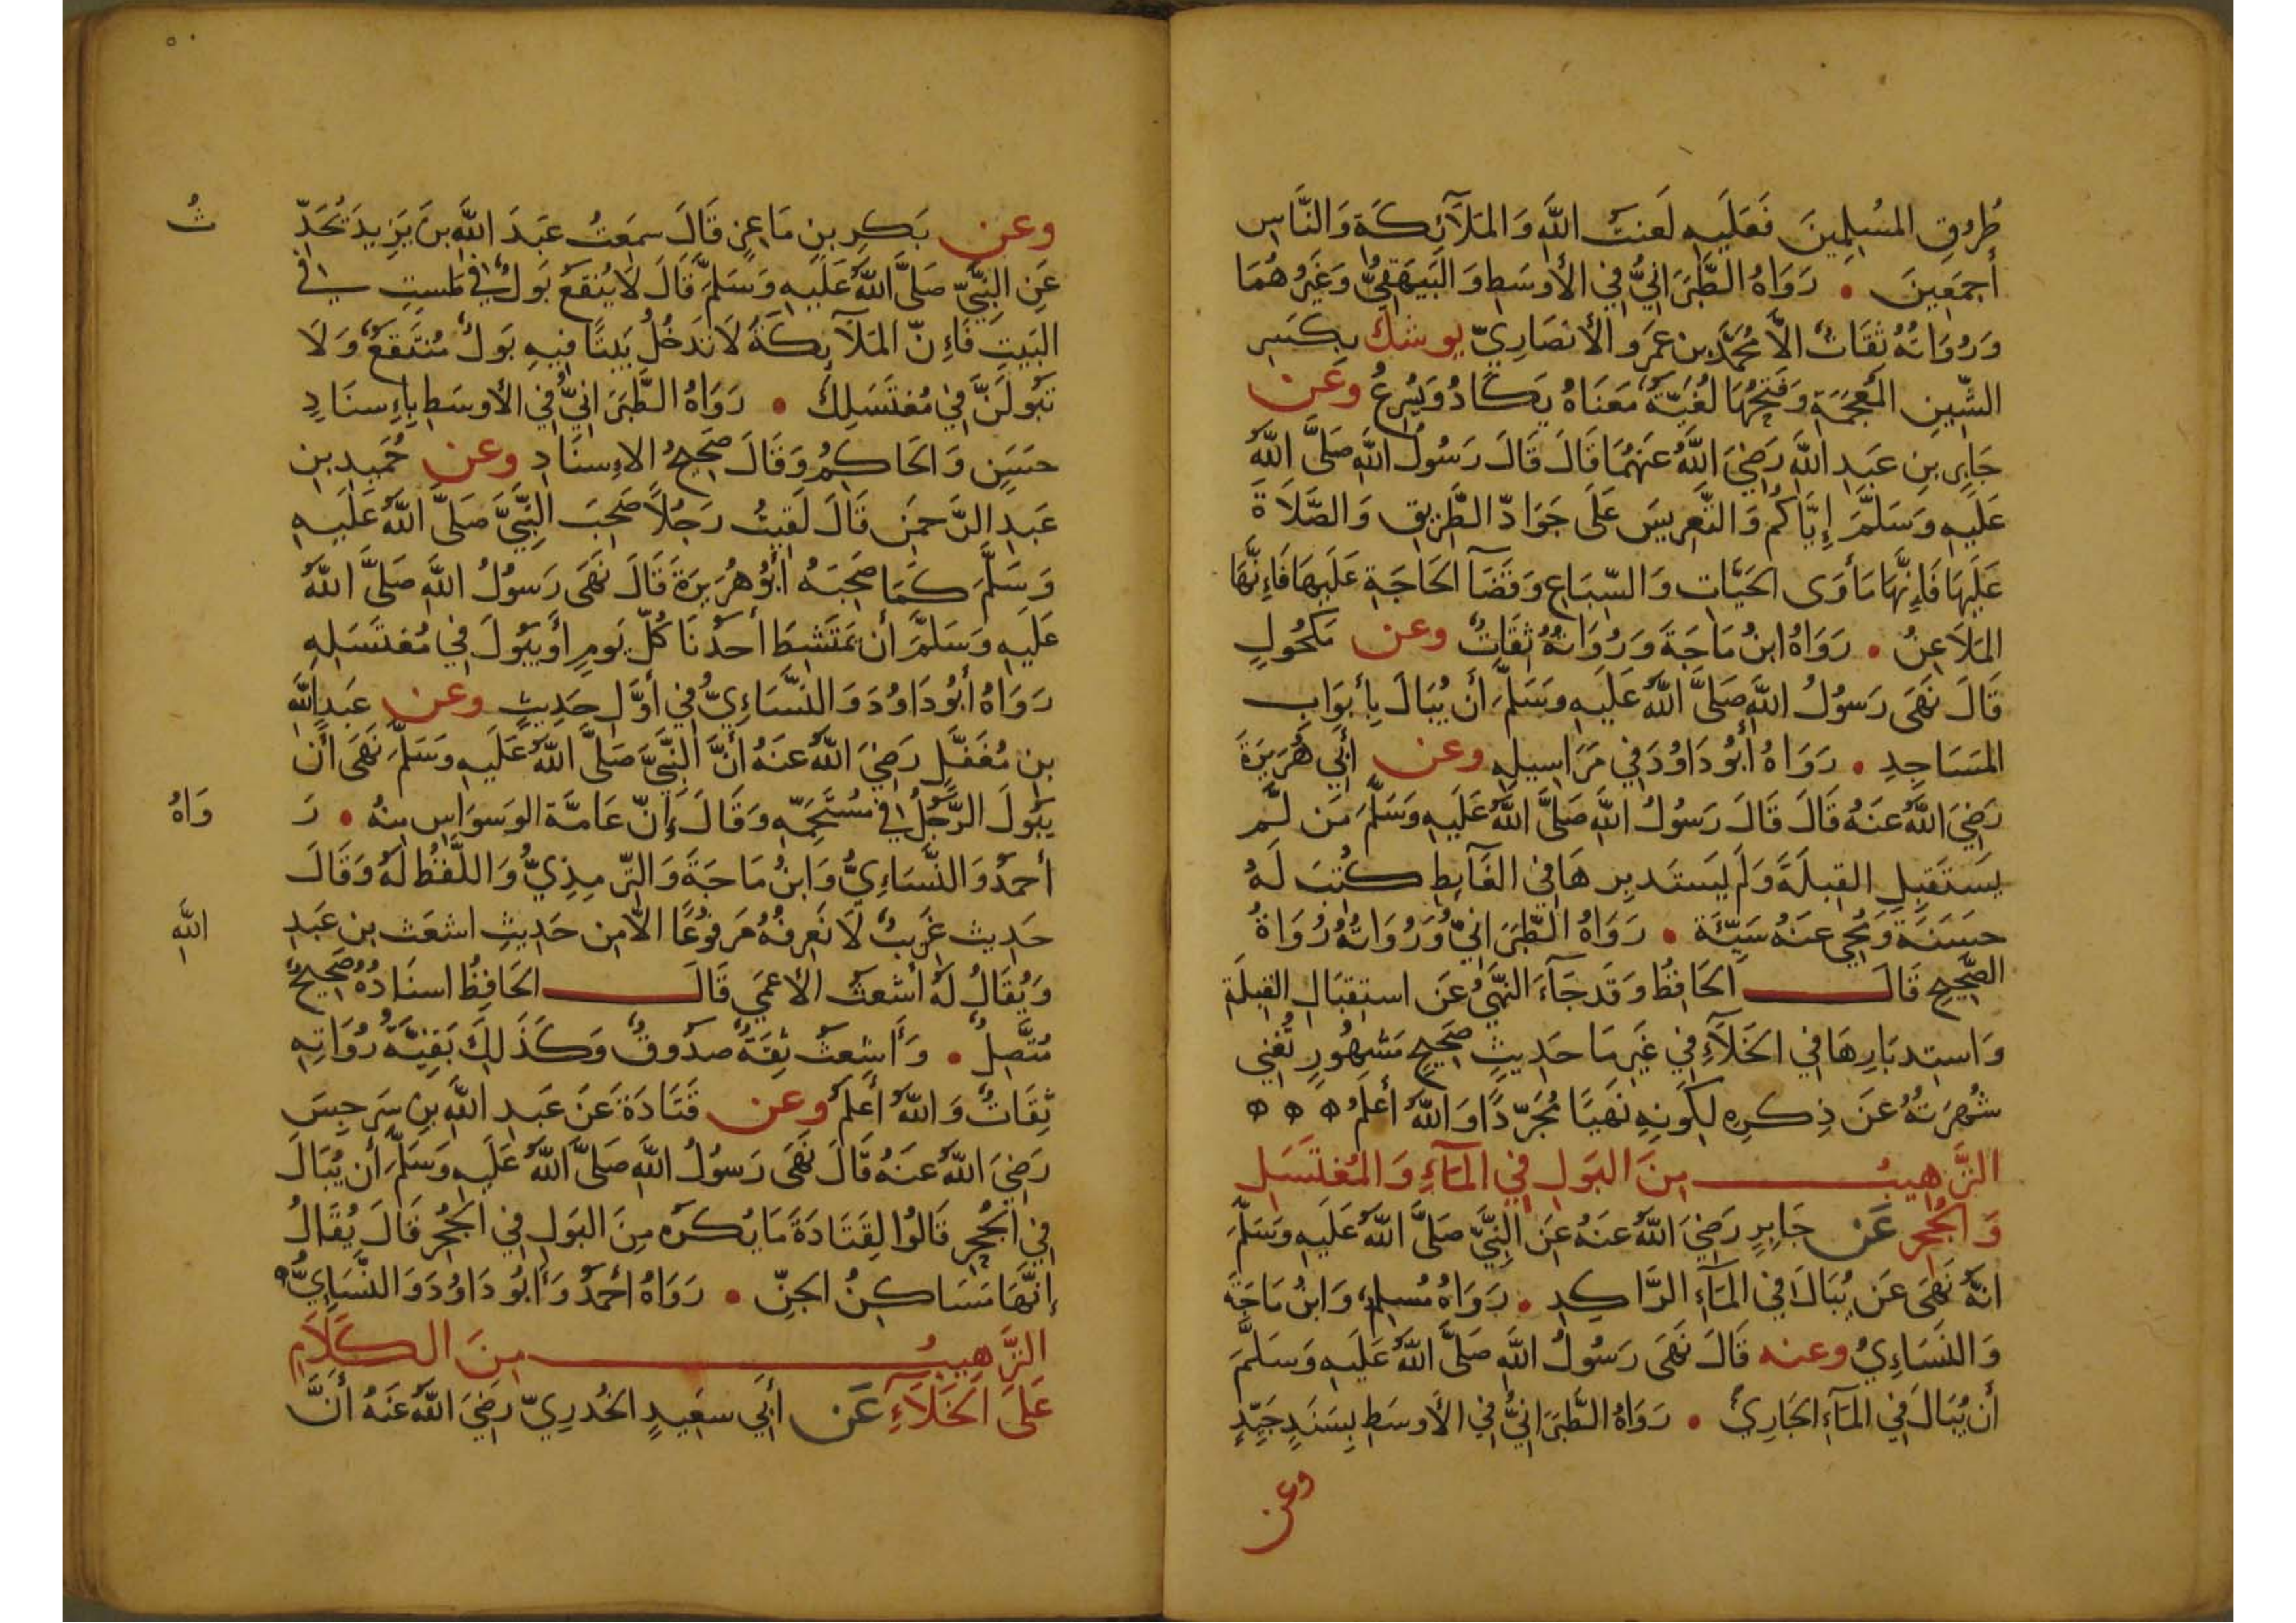 طُرُقِ المُسْلِمِينَ فَعَلَيهِ لَعنَتُ اللَّهِ وَالمَلَآئِكَةِ وَالنَّاسِ
أَجمَعِينَ • رَوَاهُ الطَّبَرَانِيُّ فِي الأَوسَطِ وَالبَيهَقِيُّ وَغَيرُهُمَا
وَرُوَاتُهُ ثِقَاتٌ الَّا مُحَمَّدَ بنِ عَمرٍو الأَنصَارِيّ يوشك بِكَسرِ
الشِّينِ المُعجَمَةِ وَفَتحُهَا لُغَيَّةٌ مَعنَاهُ يَكَادُ وَيُسرِعُ وعَن
جَابِرِ بنِ عَبدِ اللَّهِ رَضِيَ اللَّهُ عَنهُمَا قَالَ قَالَ رَسُولُ اللَّهِ صَلَّى اللَّهُ
عَلَيهِ وَسَلَّمَ إِيَّاكُم وَالتَّعرِيسَ عَلَى جَوَادِّ الطَّرِيقِ وَالصَّلَاةَ
عَلَيهَا فَإِنَّهَا مَأوَى الحَيَّاتِ وَالسِّبَاعِ وَقَضَآ الحَاجَةِ عَلَيهَا فَإِنَّهَا
المَلَاعِنُ • رَوَاهُ ابنُ مَاجَةَ وَرُوَاتُهُ ثِقَاتٌ وعن مَكحُولٍ
قَالَ نَهَى رَسُولُ اللَّهِ صَلَّى اللَّهُ عَلَيهِ وَسَلَّمَ أَن يُبَالَ بِأَبوَابِ
المَسَاجِدِ • رَوَاهُ أَبُو دَاوُدَ فِي مَرَاسِيلِهِ وعن أَبِي هُرَيرَةَ
رَضِيَ اللَّهُ عَنهُ قَالَ قَالَ رَسُولُ اللَّهِ صَلَّى اللَّهُ عَلَيهِ وَسَلَّمَ مَن لَّم
يَستَقبِلِ القِبلَةَ وَلَم يَستَدبِرهَا فِي الغَآئِطِ كُتِبَ لَهُ
حَسَنَةٌ وَمُحِيَ عَنهُ سَيِّئَةٌ • رَوَاهُ الطَّبَرَانِيُّ وَرُوَاتُهُ رُوَاةُ
الصَّحِيحِ قَالَ الحَافِظُ وَقَد جَآءَ النَّهيُ عَن استِقبَالِ القِبلَةِ
وَاستِدبَارِهَا فِي الخَلَآءِ فِي غَيرِ مَا حَدِيثٍ صَحِيحٍ مَشهُورٍ تُغنِي
شُهرَتُهُ عَن ذِكرِهِ لِكَونِهِ نَهيًا مُجَرَّدًا وَاللَّهُ أَعلَمُ ه ه ه
التَّرهِيبُ مِنَ البَولِ فِي المَآءِ وَالمُغتَسَلِ
وَالجُحرِ عَن جَابِرٍ رَضِيَ اللَّهُ عَنهُ عَنِ النَّبِيِّ صَلَّى اللَّهُ عَلَيهِ وَسَلَّمَ
انَّهُ نَهَى عَن يُبَالَ فِي المَآءِ الرَّاكِدِ • رَوَاهُ مُسلِمٌ وَابنُ مَاجَةَ
وَالنَّسَاءِيُ وعنه قَالَ نَهَى رَسُولُ اللَّهِ صَلَّى اللَّهُ عَلَيهِ وَسَلَّمَ
أَن يُبَالَ فِي المَآءِ الجَارِي • رَوَاهُ الطَّبَرَانِيُّ فِي الأَوسَطِ بِسَنَدٍ جَيِّدٍ
وعن
وعن بَكرِ بنِ مَاعِزٍ قَالَ سَمِعتُ عَبدَ اللَّهِ بنَ يَزِيدَ يُحَدِّ ثُ
عَنِ النَّبِيِّ صَلَّى اللَّهُ عَلَيهِ وَسَلَّمَ قَالَ لَا يُنقَع بَولٌ فِي طَستٍ فِي
البَيتِ فَإِنَّ المَلَآئِكَةَ لَا تَدخُلُ بَيتًا فِيهِ بَولٌ مُنتَقَعٌ وَلَا
تَبُولَنَّ فِي مُغتَسَلِكَ • رَوَاهُ الطَّبَرَانِيُّ فِي الأَوسَطِ بِإِسنَادٍ
حَسَنٍ وَالحَاكِمُ وَقَالَ صَحِيحُ الاِسنَادِ وعن حُمَيدِ بنِ
عَبدِ الرَّحمَنِ قَالَ لَقِيتُ رَجُلًا صَحِبَ النَّبِيَّ صَلَّى اللَّهُ عَلَيهِ
وَسَلَّمَ كَمَا صَحِبَهُ أَبُو هُرَيرَةَ قَالَ نَهَى رَسُولُ اللَّهِ صَلَّى اللَّهُ
عَلَيهِ وَسَلَّمَ أَن يَمتَشِطَ أَحَدُنَا كُلَّ يَومٍ أَو يَبُولَ فِي مُغتَسَلِهِ
رَوَاهُ أَبُو دَاوُدَ وَالنَّسَاءِيُّ فِي أَوَّلِ حَدِيثٍ وعن عَبدِ اللَّهِ
بنِ مُغَفَّلٍ رَضِيَ اللَّهُ عَنهُ أَنَّ النَّبِيَّ صَلَّى اللَّهُ عَلَيهِ وَسَلَّمَ نَهَى أَن
يَبُولَ الرَّجُلُ فِي مُستَحَمِّهِ وَقَالَ إِنَّ عَامَّةَ الوَسوَاسِ مِنهُ • رَ وَاهُ
أَحمَدُ وَالنَّسَاءِيُّ وَابنُ مَاجَةَ وَالتِّرمِذِيُّ وَاللَّفظُ لَهُ وَقَالَ
حَدِيث غَرِيبٌ لَا نَعرِفُهُ مَرفُوعًا الَّا مِن حَدِيثِ اشعَث بنِ عَبدِ اللَّهِ
وَيُقَالُ لَهُ أَشعَثُ الأَعمَى قَالَ الحَافِظُ اسنَادُهُ صَحِيحٌ
مُتَّصِلٌ • وَأَشعَثُ ثِقَةٌ صَدُوقٌ وَكَذَلِكَ بَقِيَّةُ رُوَاتِهِ
ثِقَاتٌ وَاللَّهُ أَعلَمُ وعن قَتَادَةَ عَن عَبدِ اللَّهِ بنِ سَرجِسَ
رَضِيَ اللَّهُ عَنهُ قَالَ نَهَى رَسُولُ اللَّهِ صَلَّى اللَّهُ عَلَيهِ وَسَلَّمَ أَن يُبَالَ
فِي الجُحرِ قَالُوا لِقَتَادَةَ مَا يُكرَهُ مِنَ البَولِ فِي الجُحرِ قَالَ يُقَالُ
إِنَّهَا مَسَاكِنُ الجِنِّ • رَوَاهُ أَحمَدُ وَأَبُو دَاوُدَ وَالنَّسَايِيُّ ه
التَّرهِيبُ مِنَ الكَلَامِ
عَلَى الخَلَآءِ عَن أَبِي سَعِيدٍ الخُدرِيِّ رَضِيَ اللَّهُ عَنهُ أَنَّ